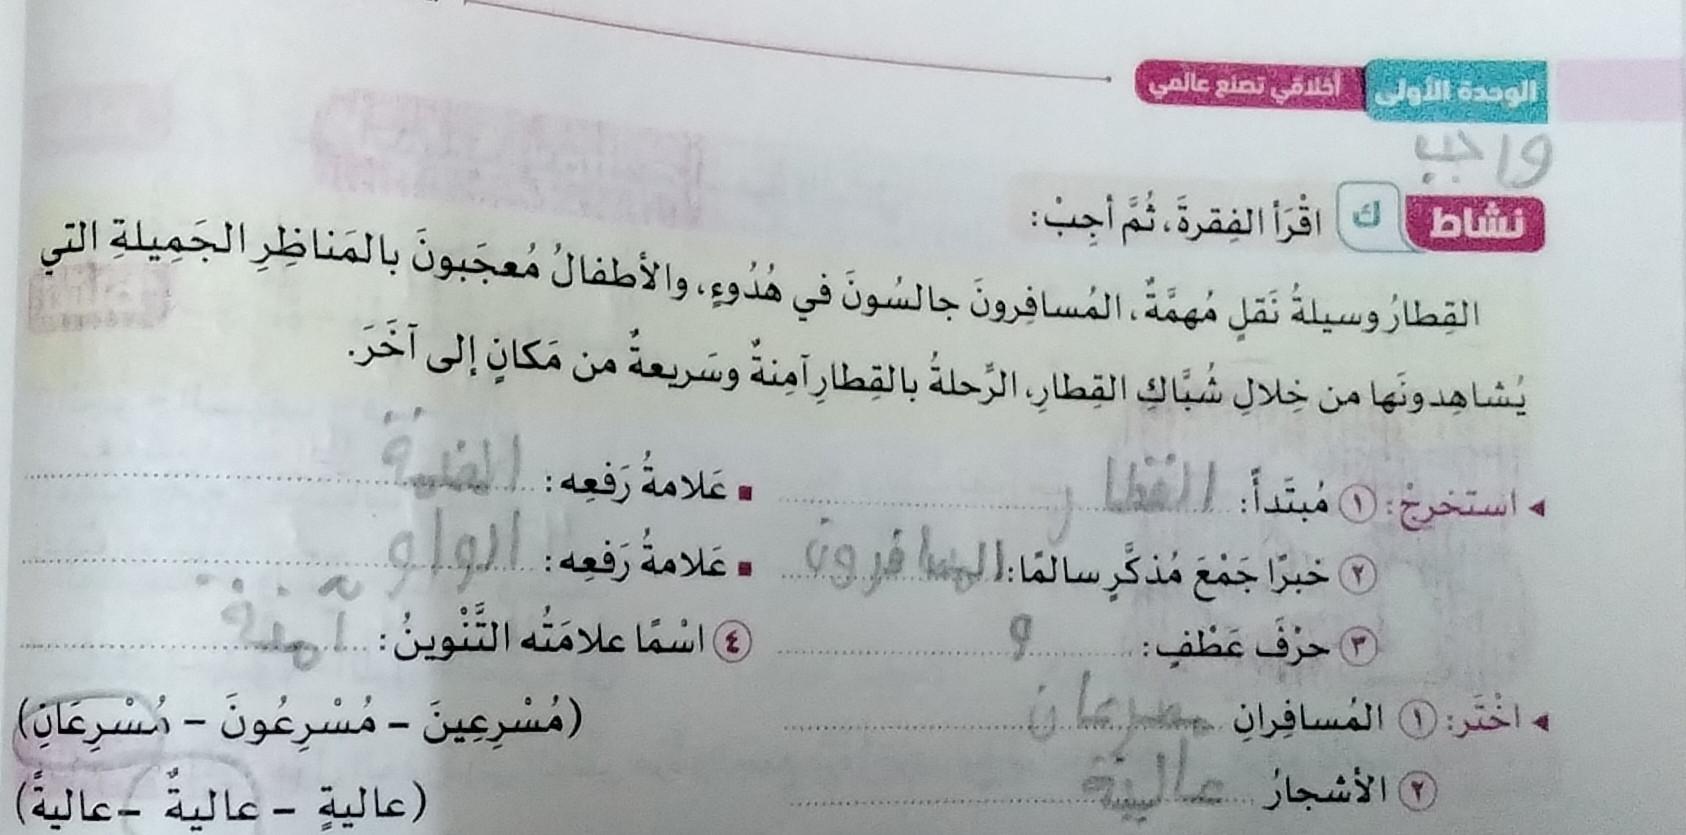 الوحدة الأولى أخلاقي تصنع عالمي
واجب
نشاط ك اقْرَأ الفِقرةَ، ثُمَّ أجِبْ:
القِطارُ وسيلةُ نَقلٍ مُهمَّةٌ، المُسافِرونَ جالسُونَ في هُدُوءٍ، والأطفالُ مُعجَبونَ بالمَناظِرِ الجَمِيلةِ التي
يُشاهِدونَها من خِلالِ شُبَّاكِ القِطارِ، الرِّحلةُ بالقِطارِ آمِنةٌ وسَريعةٌ من مَكانٍ إلى آخَرَ.
◂ استخرِجْ: ① مُبتَدأً: القطار ▪ عَلامةُ رَفعِه: الضمة
② خبرًا جَمْعَ مُذكَّرٍ سالمًا: المسافرون ▪ عَلامةُ رَفعِه: الواو
③ حرْفَ عَطْفٍ: و ④ اسْمًا علامَتُه التَّنْوينُ: آمنة
◂ اخْتَر: ① المُسافِرانِ مصرعان (مُسْرِعِينَ – مُسْرِعُونَ – مُسْرِعَانِ)
② الأشجارُ عالية (عاليةٍ – عاليةٌ – عاليةً)